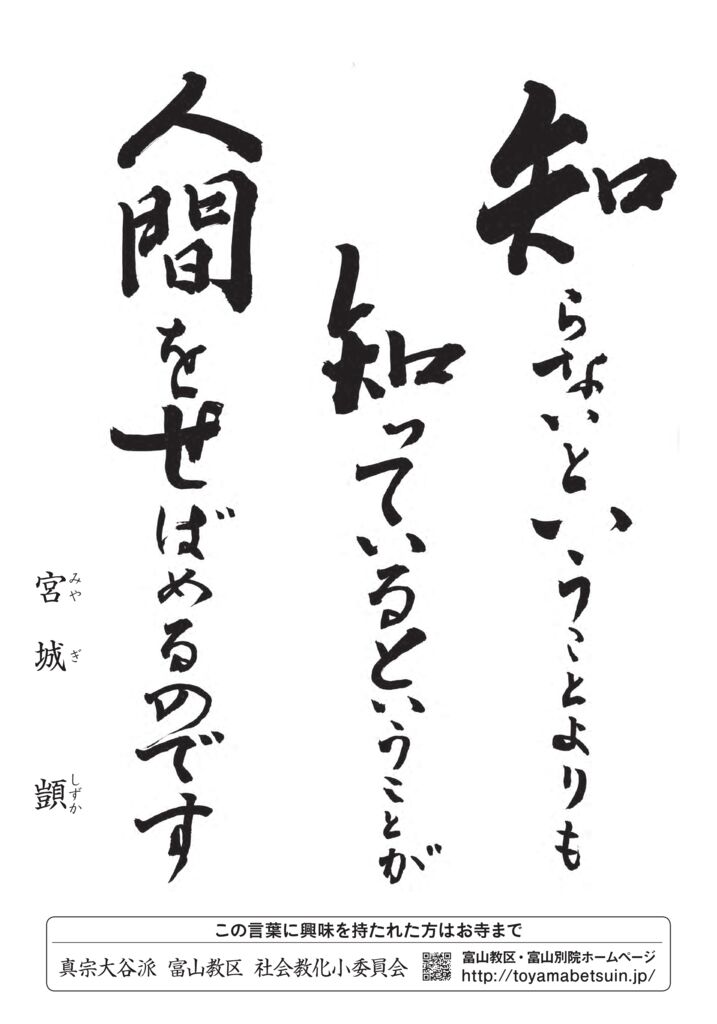 知らないということよりも
知っているということが
人間をせばめるのです
宮城 顗
みやぎ しずか
この言葉に興味を持たれた方はお寺まで
真宗大谷派 富山教区 社会教化小委員会
富山教区・富山別院ホームページ
http://toyamabetsuin.jp/